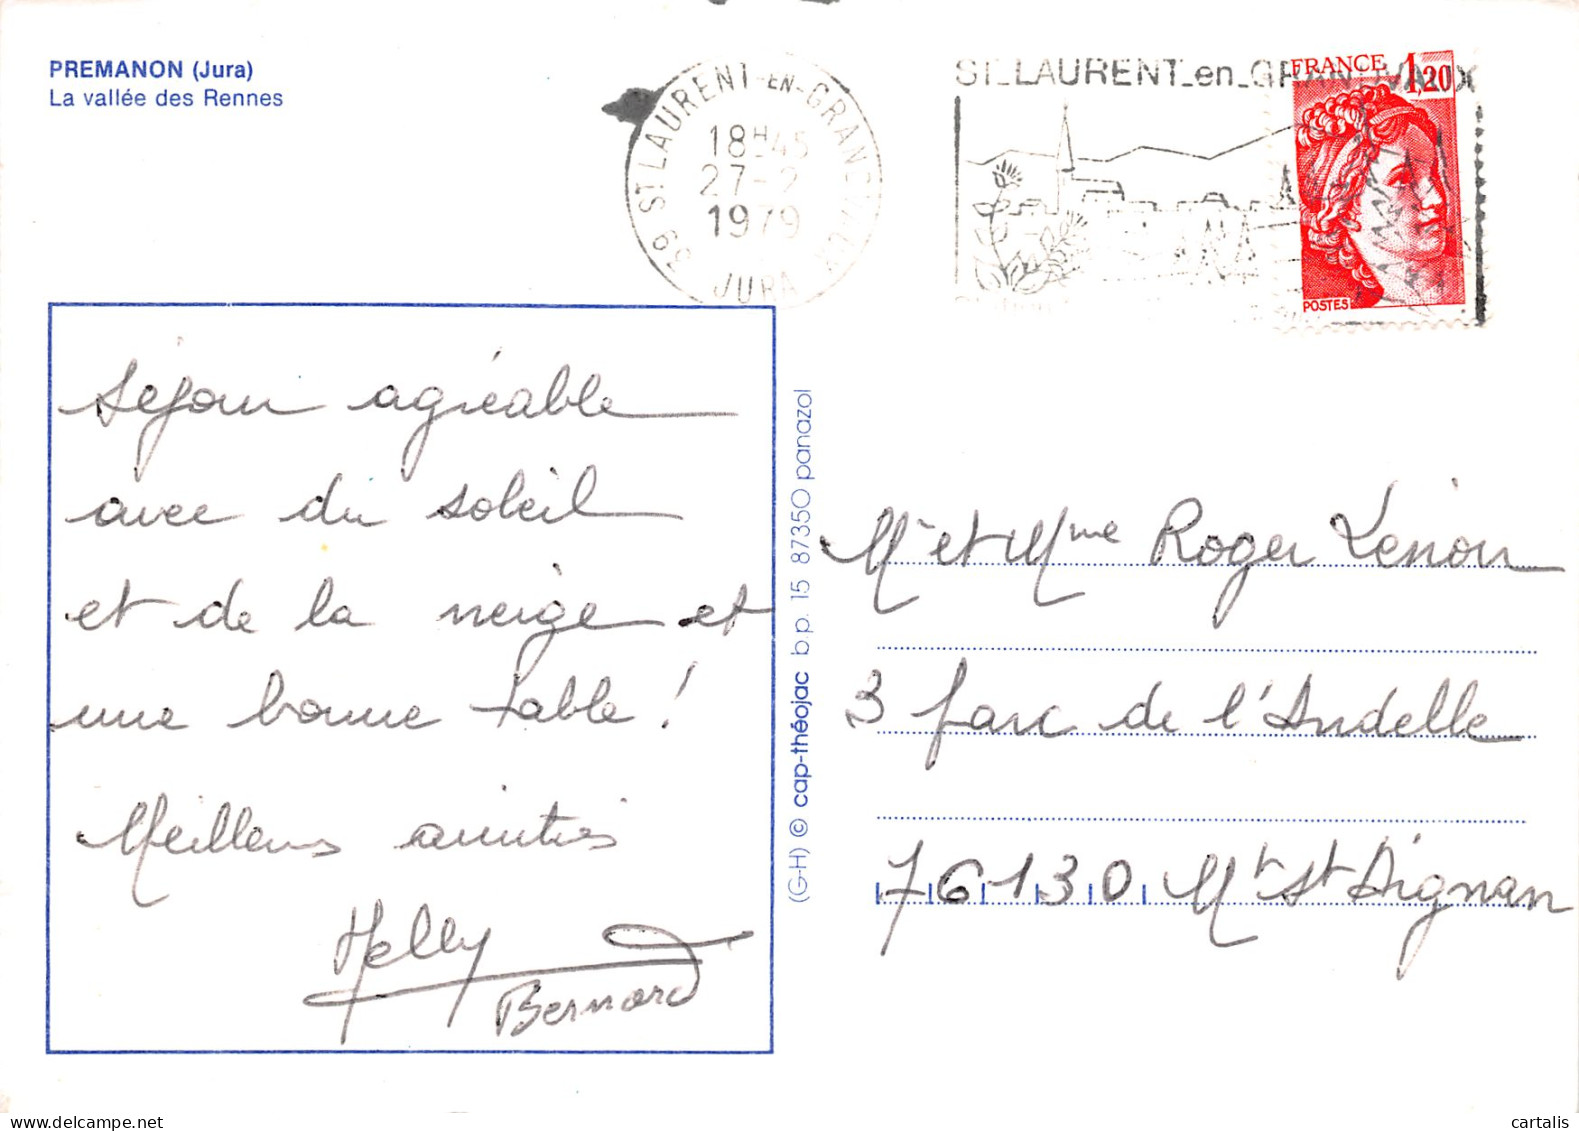 PREMANON (Jura)
La vallée des Rennes
39 ST LAURENT-EN-GRANDVAUX
18H45
27-2
1979
JURA
ST_LAURENT_en_GRANDVAUX
FRANCE 1,20
POSTES
Séjour agréable
avec du soleil
et de la neige et
une bonne table !
Meilleures amitiés
Nelly
Bernard
(G-H) © cap-théojac b.p. 15 87350 panazol
Mr et Mme Roger
3 Parc de l'Andelle
76130 Mt St Aignan
cartalis